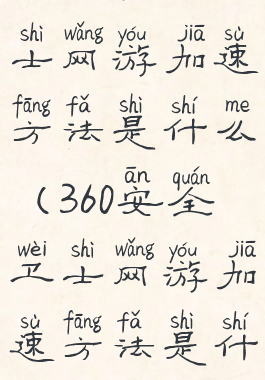 shì wǎng yóu jiā sù
士网游加速
fāng fǎ shì shí me
方法是什么
ān quán
(360安全
wèi shì wǎng yóu jiā
卫士网游加
sù fāng fǎ shì shí
速方法是什